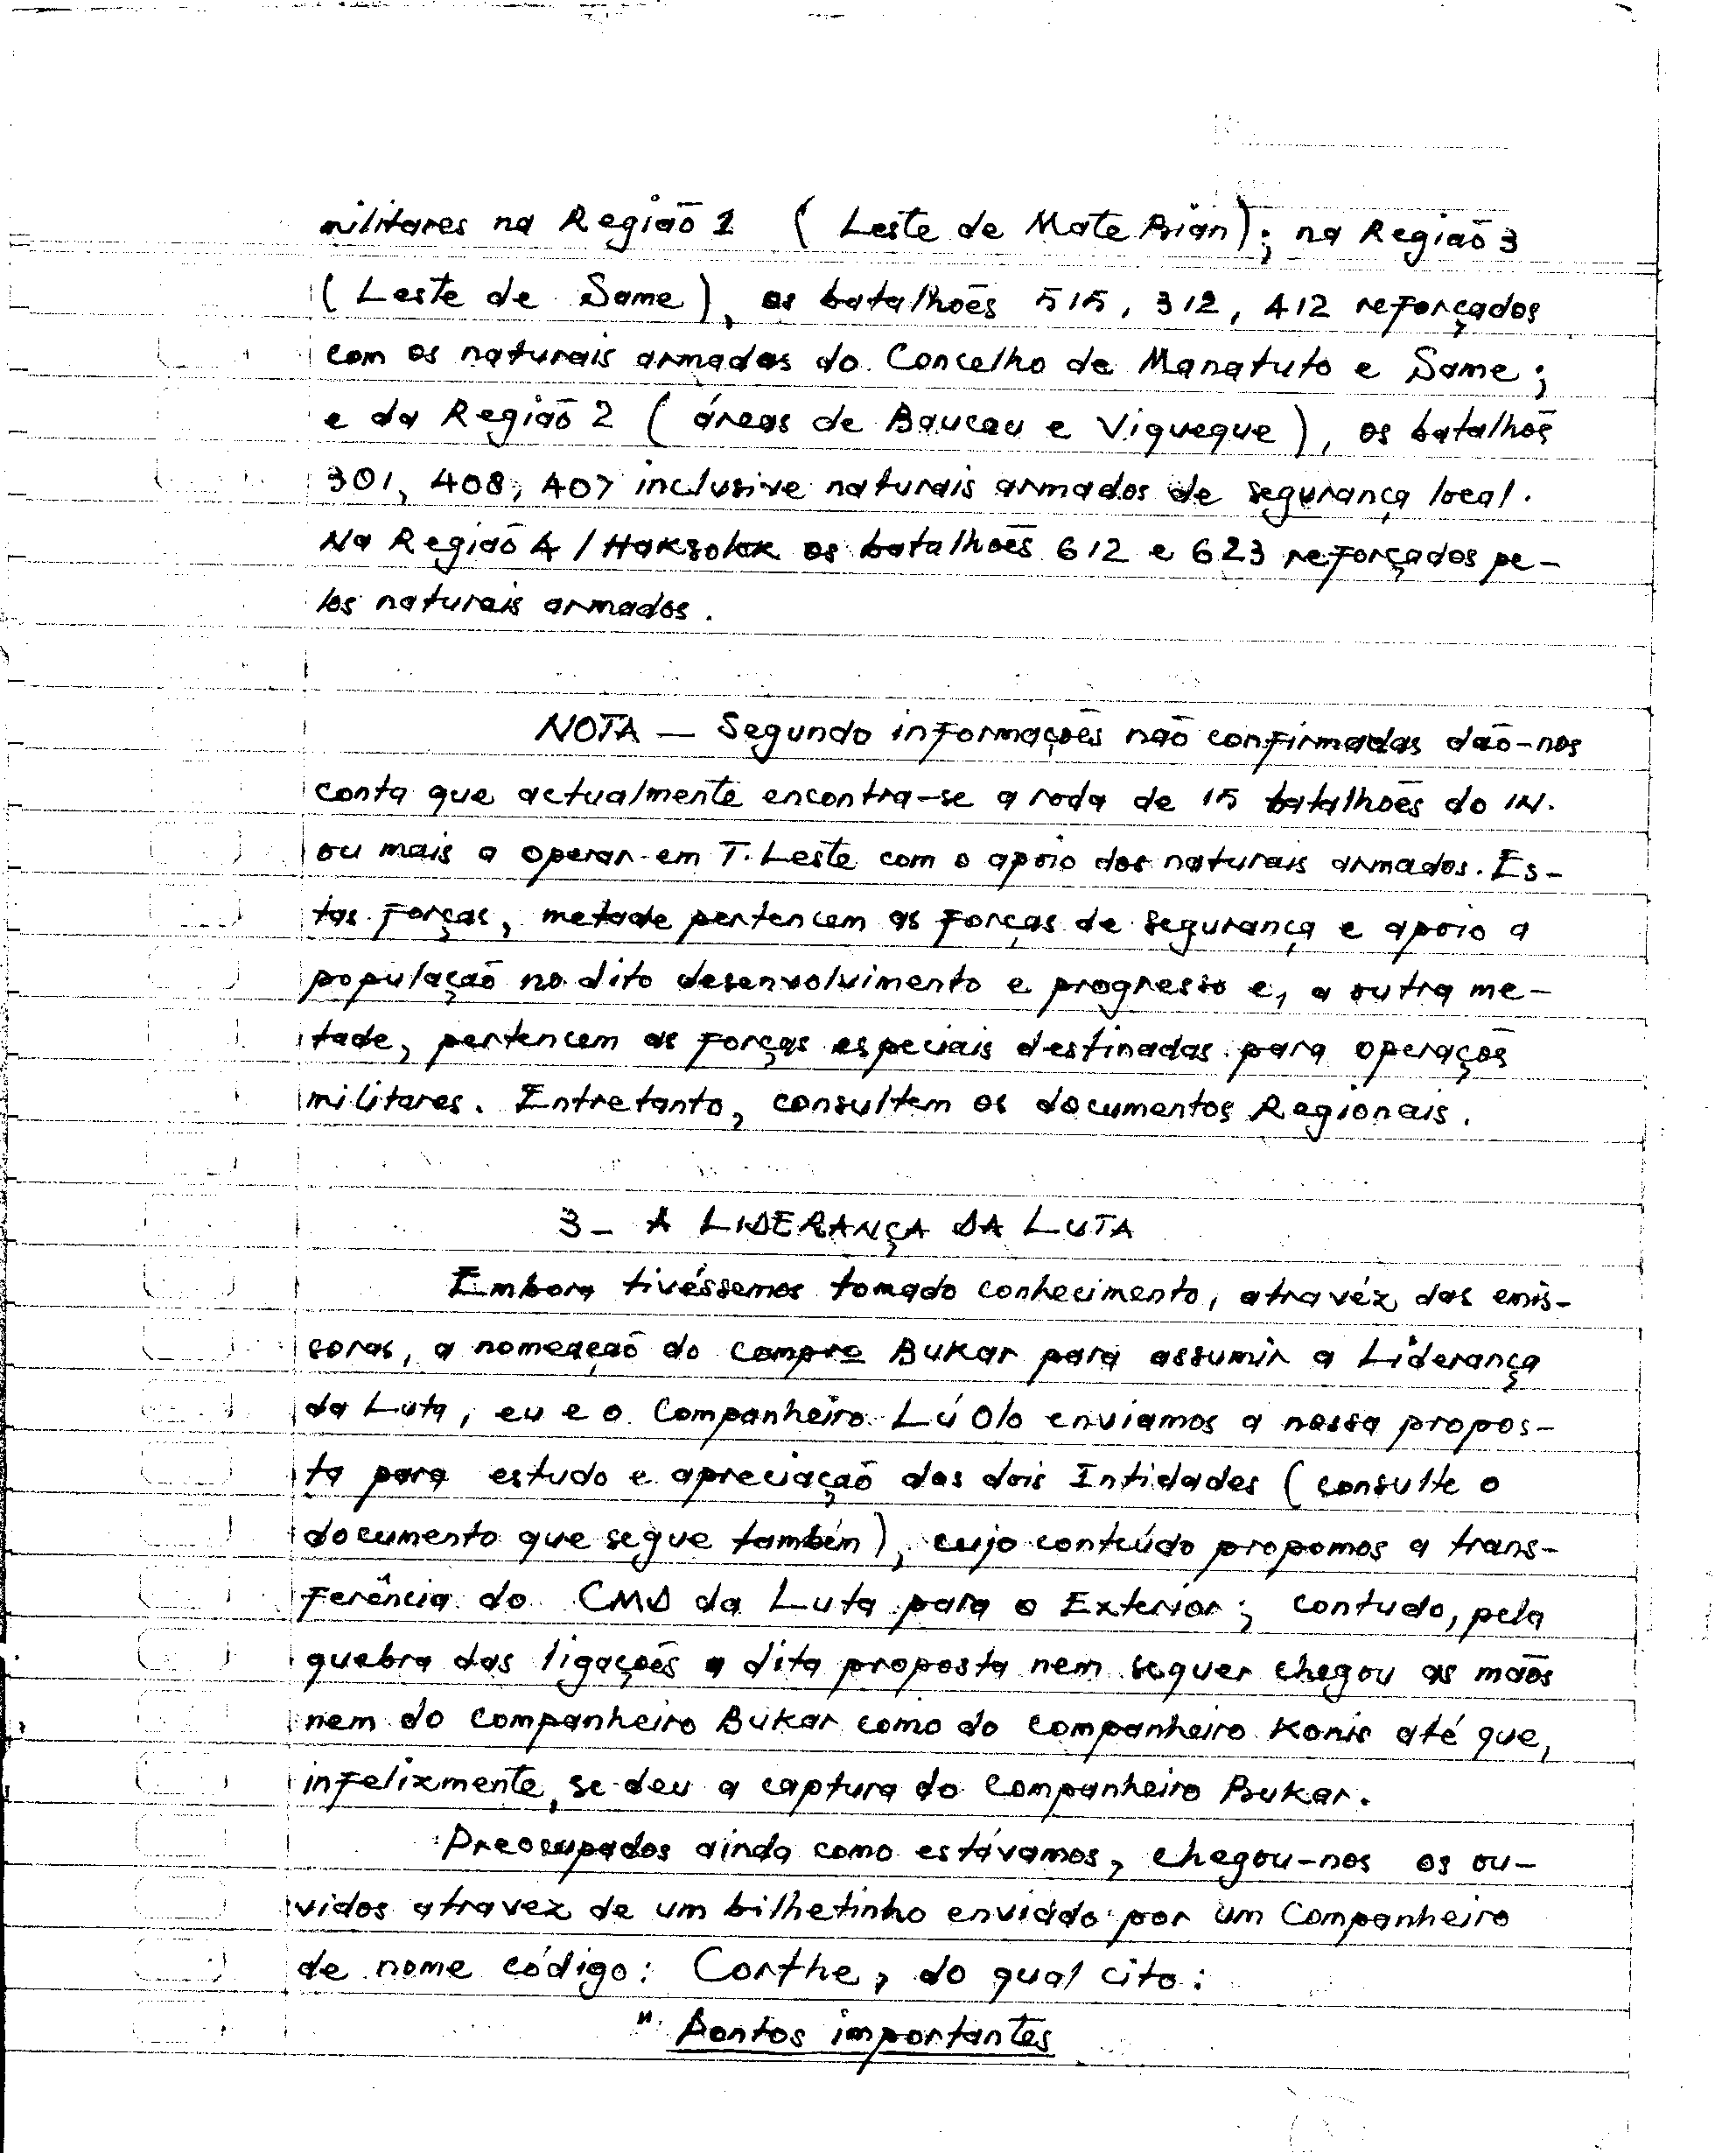 militares na Região 1 ( Leste de Mate Bian); na Região 3
( Leste de Same ), os batalhões 515, 312, 412 reforçados
com os naturais armados do Concelho de Manatuto e Same ;
e da Região 2 ( áreas de Baucau e Viqueque ), os batalhoẽ
301, 408, 407 inclusive naturais armados de segurança local.
Na Região 4 / Haksolok os batalhões 612 e 623 reforçados pe-
los naturais armados.
NOTA — Segundo informações não confirmadas dão-nos
conta que actualmente encontra-se a roda de 15 batalhões do IN.
ou mais a operar em T. Leste com o apoio dos naturais armados. Es-
tas forças, metade pertencem as forças de segurança e apoio a
população no dito desenvolvimento e progresso e, a outra me-
tade, pertencem as forças especiais destinadas para operaçõs
militares. Entretanto, consultem os documentos Regionais.
3 - A LIDERANÇA DA LUTA
Embora tivéssemos tomado conhecimento, atravéz das emis-
soras, a nomeação do compro Bukar para assumir a Liderança
da Luta, eu e o Companheiro Lú Olo enviamos a nossa propos-
ta para estudo e apreciação dos dois Intidades ( consulte o
documento que segue também ), cujo conteúdo propomos a trans-
ferência do CMD da Luta para o Exterior ; contudo, pela
quebra das ligações a dita proposta nem sequer chegou as mãos
nem do companheiro Bukar como do companheiro Konis até que,
infelixmente, se deu a captura do Companheiro Bukar.
Preocupados ainda como estávamos, chegou-nos os ou-
vidos atravez de um bilhetinho enviado por um Companheiro
de nome código : Corthe, do qual cito :
" Pontos importantes